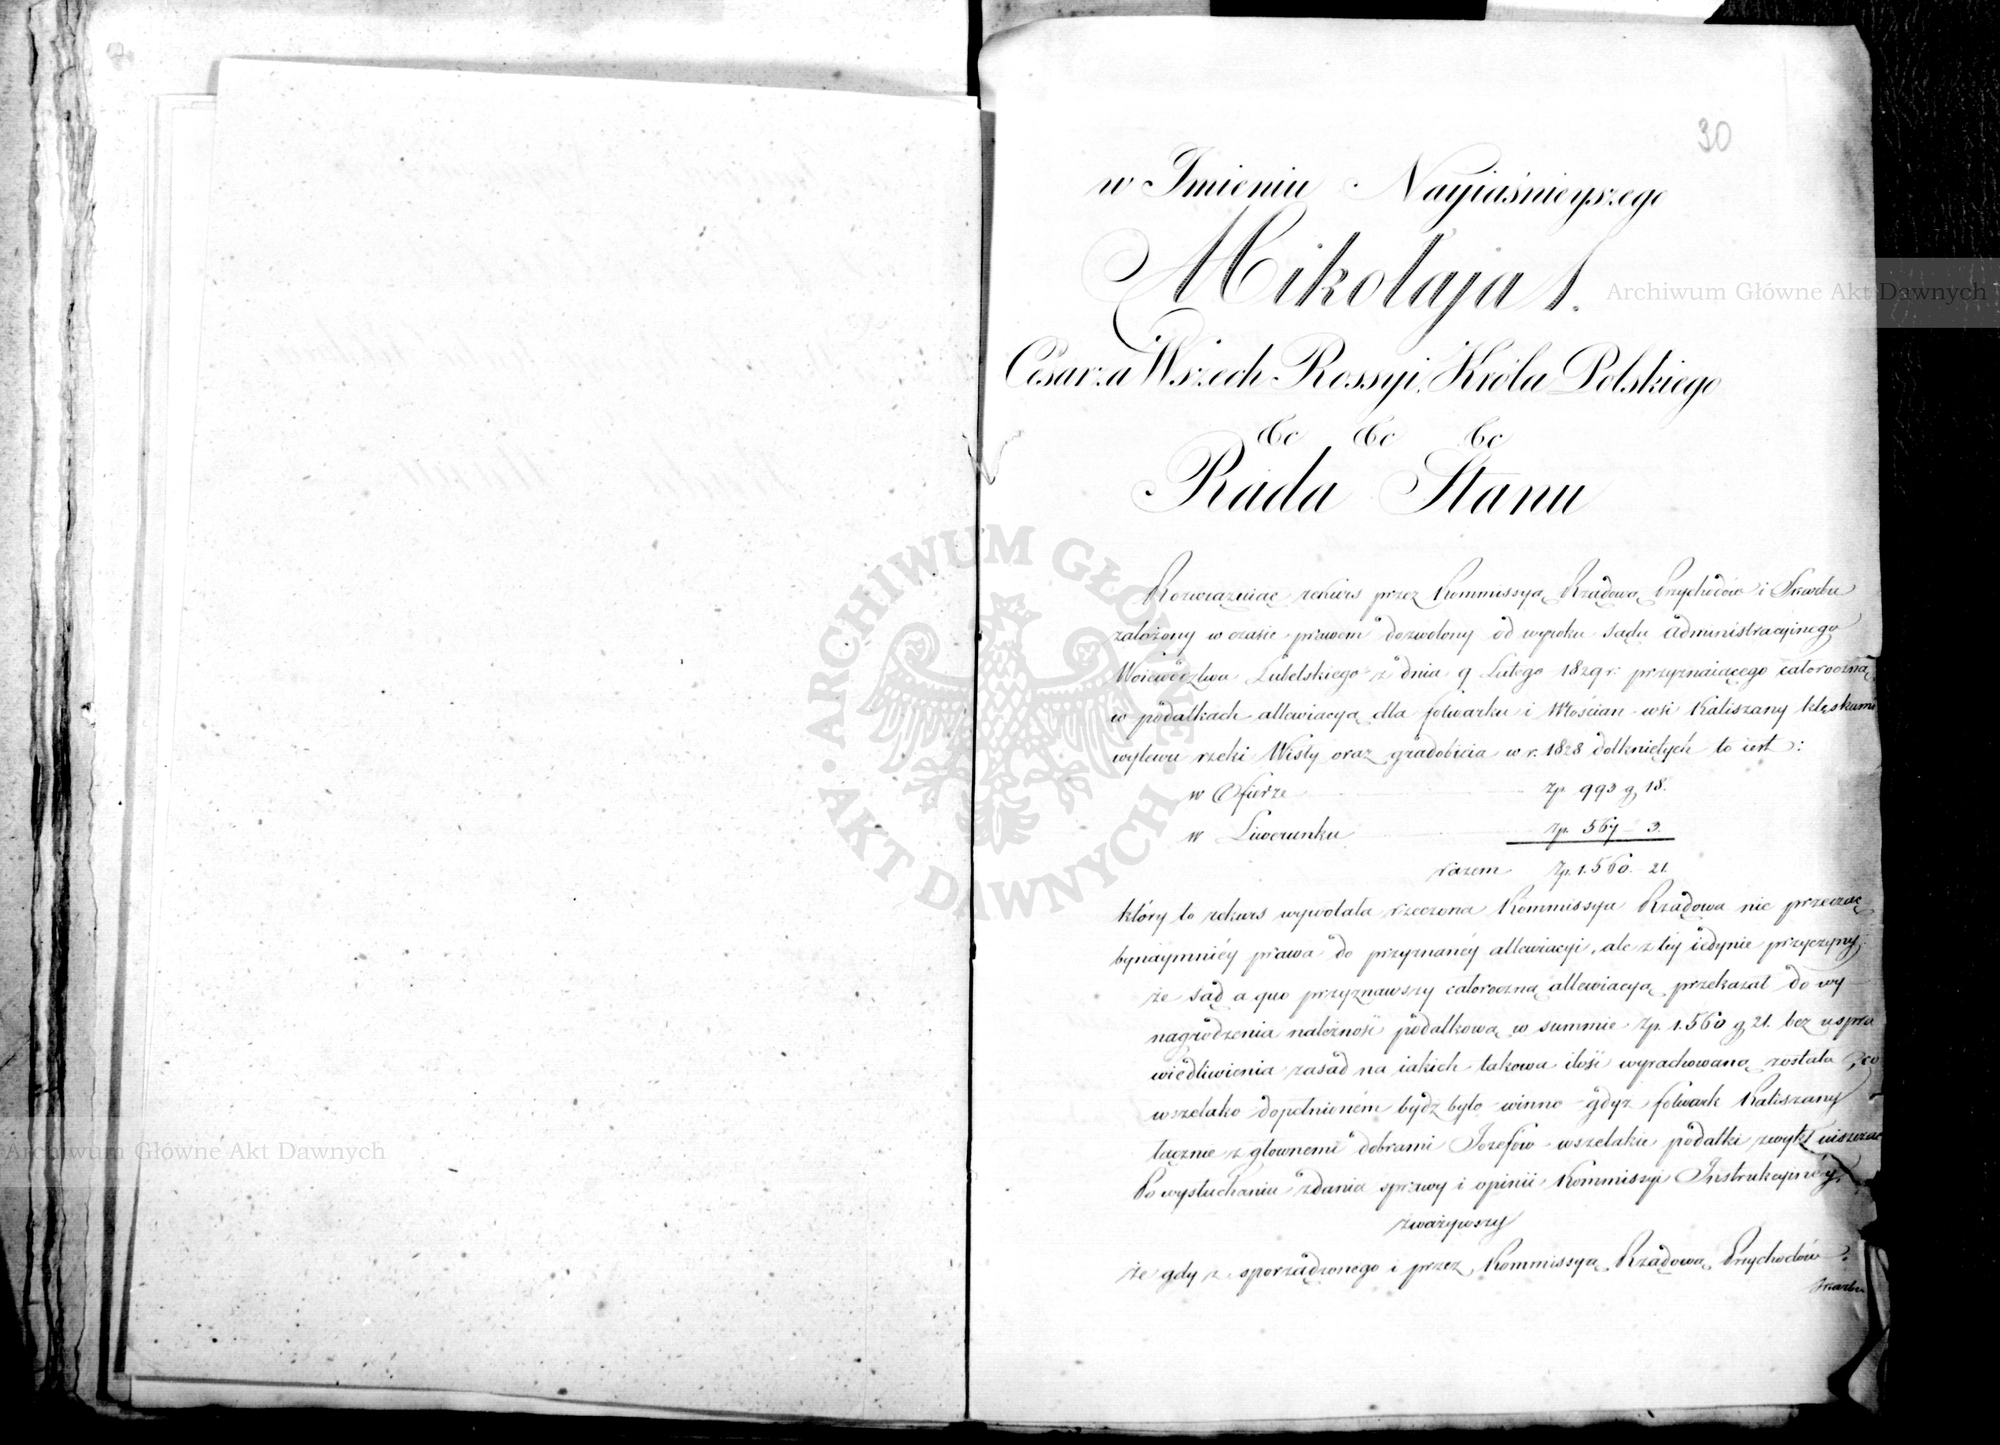 30
w Imieniu Nayiaśnieyszego
Mikołaja I.
Cesarza Wszech Rossyi, Króla Polskiego
&c &c &c
Rada Stanu
Rozwiązuiąc rekurs przez Kommissyą Rządową Przychodów i Skarbu
założony w czasie prawem dozwolony od wyroku sądu administracyinego
Woiewództwa Lubelskiego z dnia 9 Lutego 1829 r. przyznaiącego całoroczną
w podatkach allewiacyą dla folwarku i Włościan wsi Kaliszany klęskami
wylewu rzeki Wisły oraz gradobicia w r. 1828 dotkniętych to iest:
w Ofierze Zp. 993 g 18.
w Liwerunku Zp. 567 - 3.
razem Zp. 1.560. - 21.
który to rekurs wywołała rzeczona Kommissya Rządowa nie przecząc
bynaymniéy prawa do przyznanéy allewiacyi, ale z téy iedynie przyczyny,
że sąd a quo przyznawszy całoroczną allewiacyą przekazał do wy
nagrodzenia należność podatkową w summie Zp. 1.560 g 21. bez uspra
wiedliwienia zasad na iakich takowa ilość wyrachowaną została, co
wszelako dopełnioném bydź było winno gdyż folwark Kaliszany
łącznie z głownemi dobrami Jozefów wszelakie podatki zwykł uiszczać
Po wysłuchaniu zdania sprawy i opinii Kommissyi Instrukcyinéy,
zważywszy
że gdy z sporządzonego i przez Kommissyą Rządową Przychodów i
Skarbu
Archiwum Główne Akt Dawnych
Archiwum Główne Akt Dawnych
ARCHIWUM GŁÓWNE AKT DAWNYCH